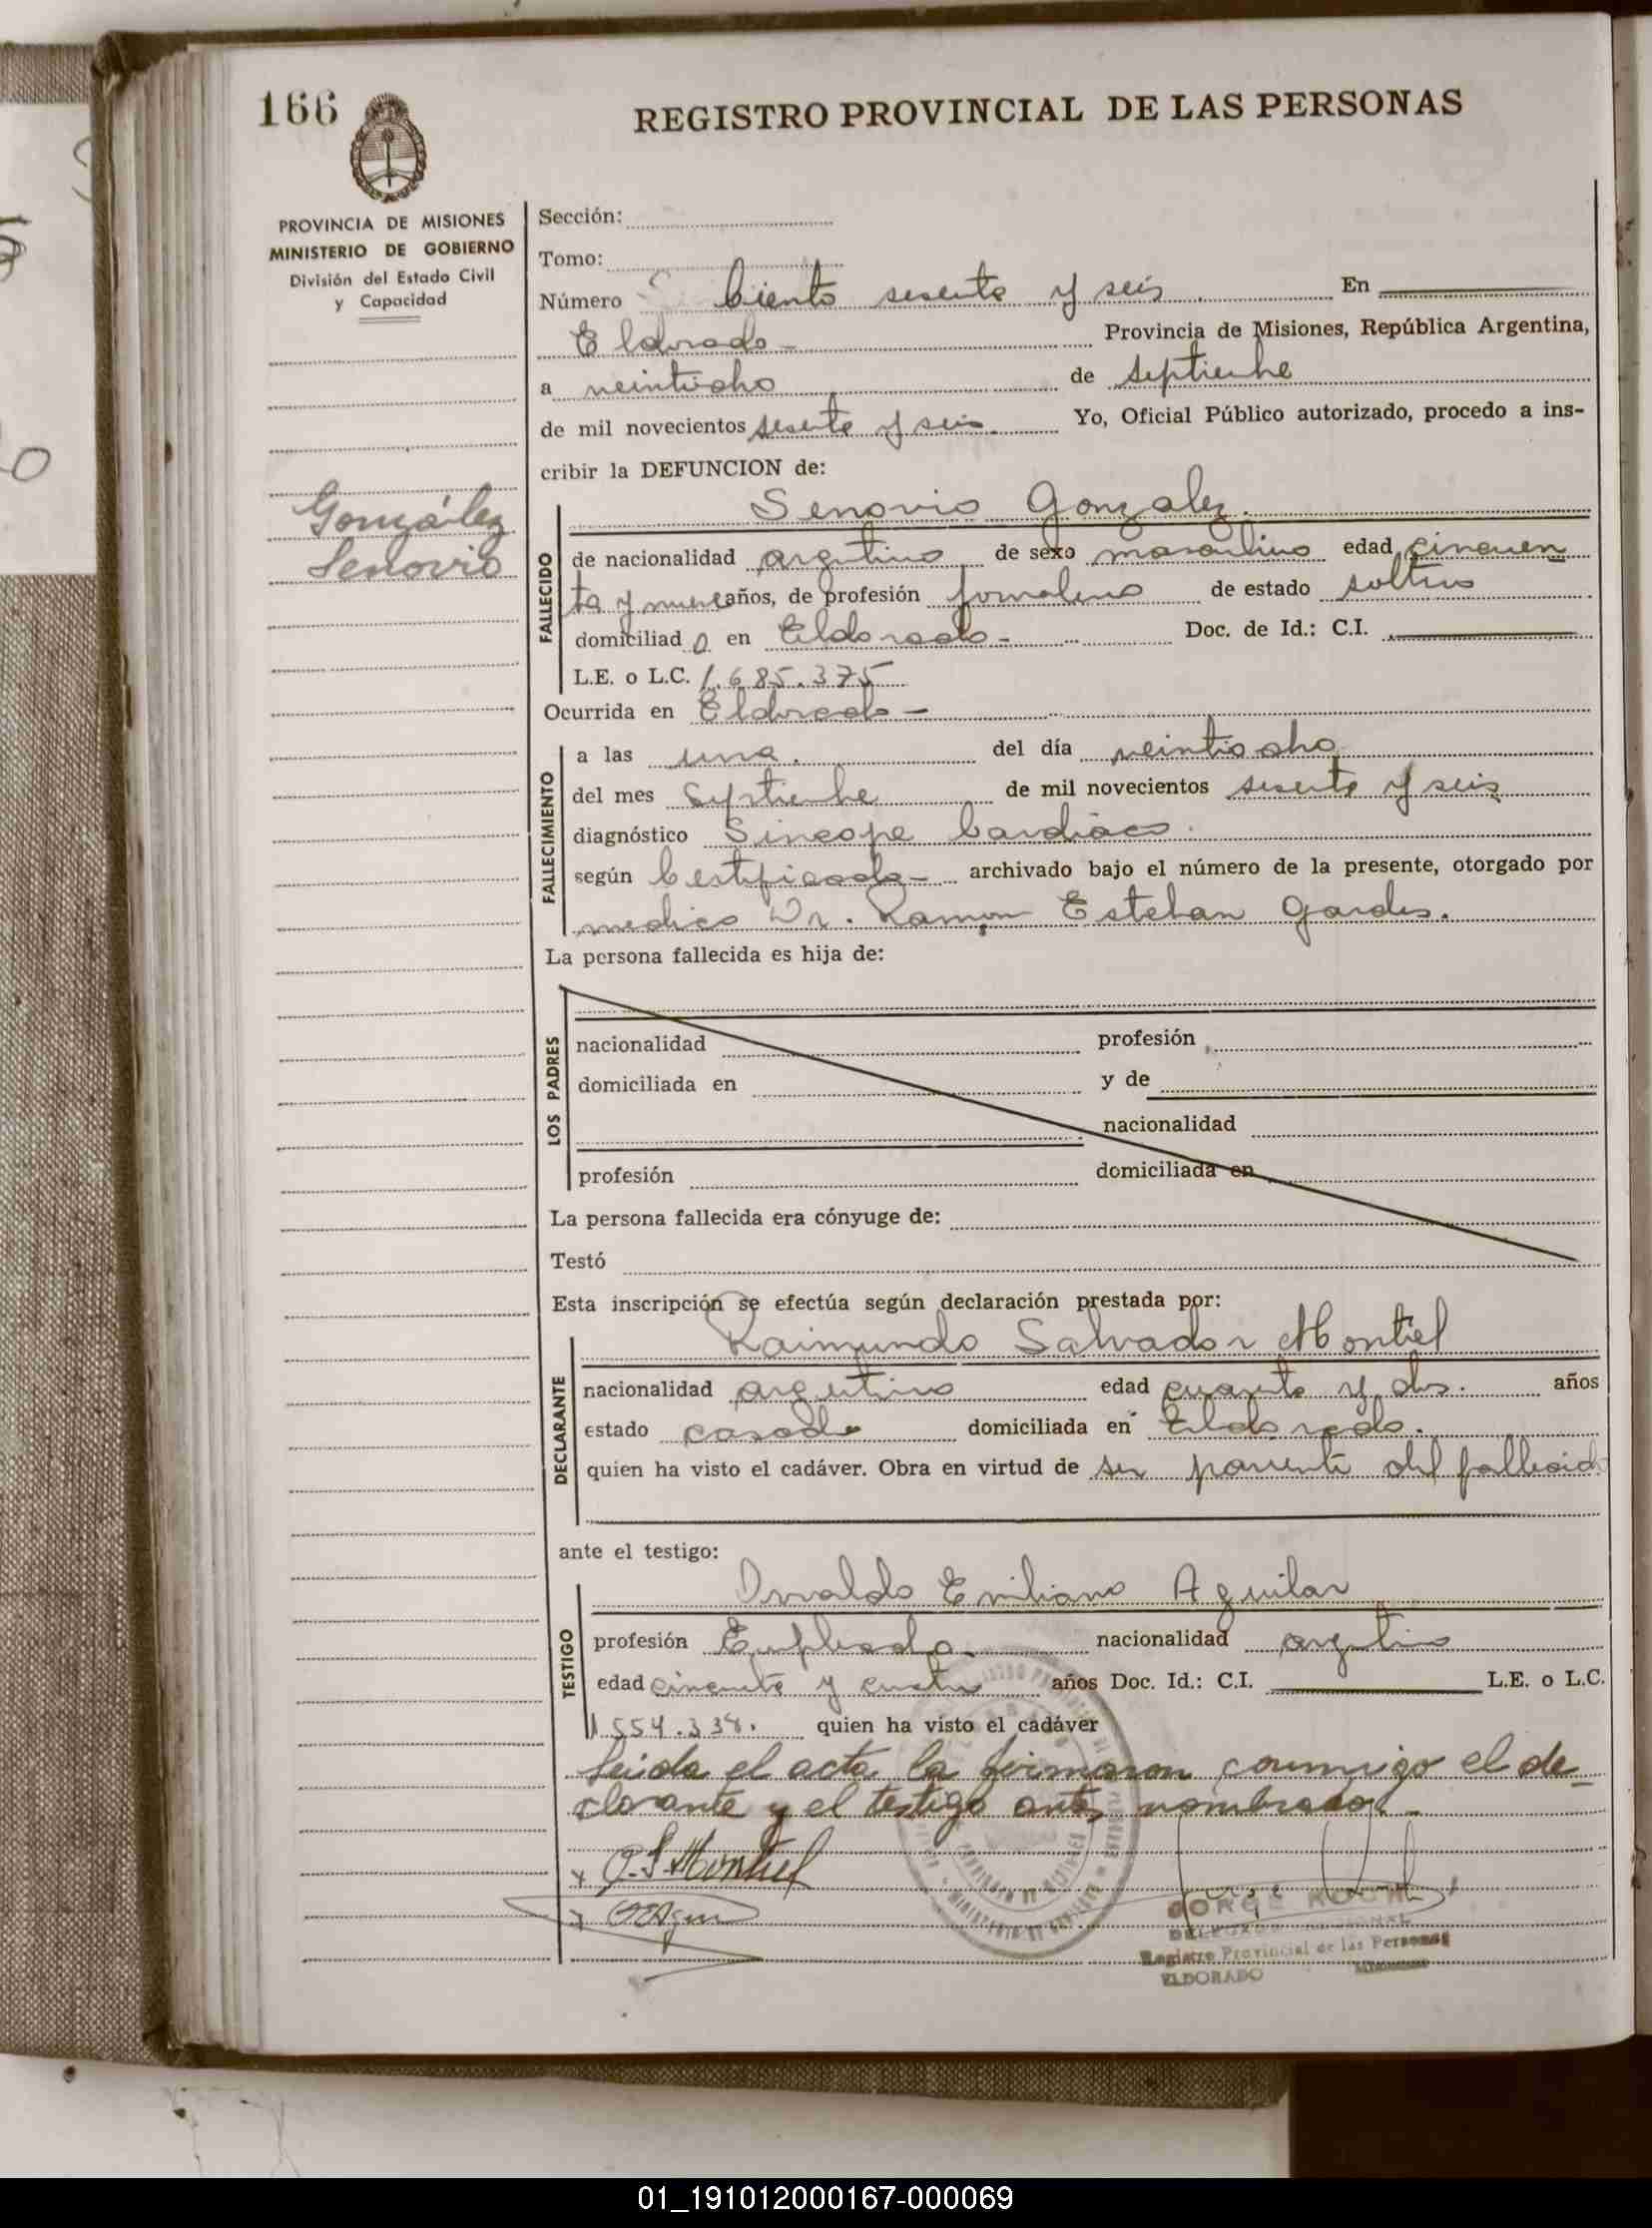 166
REGISTRO PROVINCIAL DE LAS PERSONAS
PROVINCIA DE MISIONES
MINISTERIO DE GOBIERNO
División del Estado Civil
y Capacidad
González
Senovio
Sección:
Tomo:
Número Ciento sesenta y seis. En
Eldorado - Provincia de Misiones, República Argentina,
a veintiocho de septiembre
de mil novecientos sesenta y seis. Yo, Oficial Público autorizado, procedo a ins-
cribir la DEFUNCION de:
Senovio Gonzalez.
FALLECIDO
de nacionalidad argentino de sexo masculino edad cincuen
ta y nueve años, de profesión jornalero de estado soltero
domiciliado en Eldorado - Doc. de Id.: C.I.
L.E. o L.C. 1.685.375
Ocurrida en Eldorado -
FALLECIMIENTO
a las una. del día veintiocho
del mes Septiembre de mil novecientos sesenta y seis
diagnóstico Sincope Cardiaco.
según Certificado - archivado bajo el número de la presente, otorgado por
medico Dr. Ramon Esteban Gardes.
La persona fallecida es hija de:
LOS PADRES
nacionalidad profesión
domiciliada en y de
nacionalidad
profesión domiciliada en
La persona fallecida era cónyuge de:
Testó
Esta inscripción se efectúa según declaración prestada por:
Raimundo Salvador Montiel
DECLARANTE
nacionalidad argentino edad cuarenta y dos. años
estado casado domiciliada en Eldorado.
quien ha visto el cadáver. Obra en virtud de ser pariente del fallecido
ante el testigo:
Osvaldo Emiliano Aguilar
TESTIGO
profesión Empleado. nacionalidad argentino
edad cincuenta y cuatro años Doc. Id.: C.I. L.E. o L.C.
1.554.338. quien ha visto el cadáver
Leida el acta la firmaron conmigo el de-
clarante y el testigo antes nombrados.-
R.S. Montiel
JORGE
Registro Provincial de las Personas
ELDORADO MISIONES
01_191012000167-000069